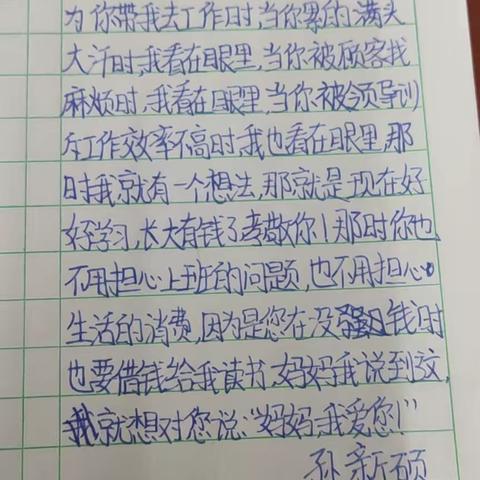 为你带我去工作时,当你累的满头
大汗时,我看在眼里,当你被顾客找
麻烦时,我看在眼里,当你被领导训
斥工作效率不高时,我也看在眼里,那
时我就有一个想法,那就是现在好
好学习,长大有钱了孝敬你!那时你也
不用担心上班的问题,也不用担心
生活的消费,因为是您在没钱时
也要借钱给我读书,妈妈我说到这,
我就想对您说:“妈妈,我爱您!”
孙新硕